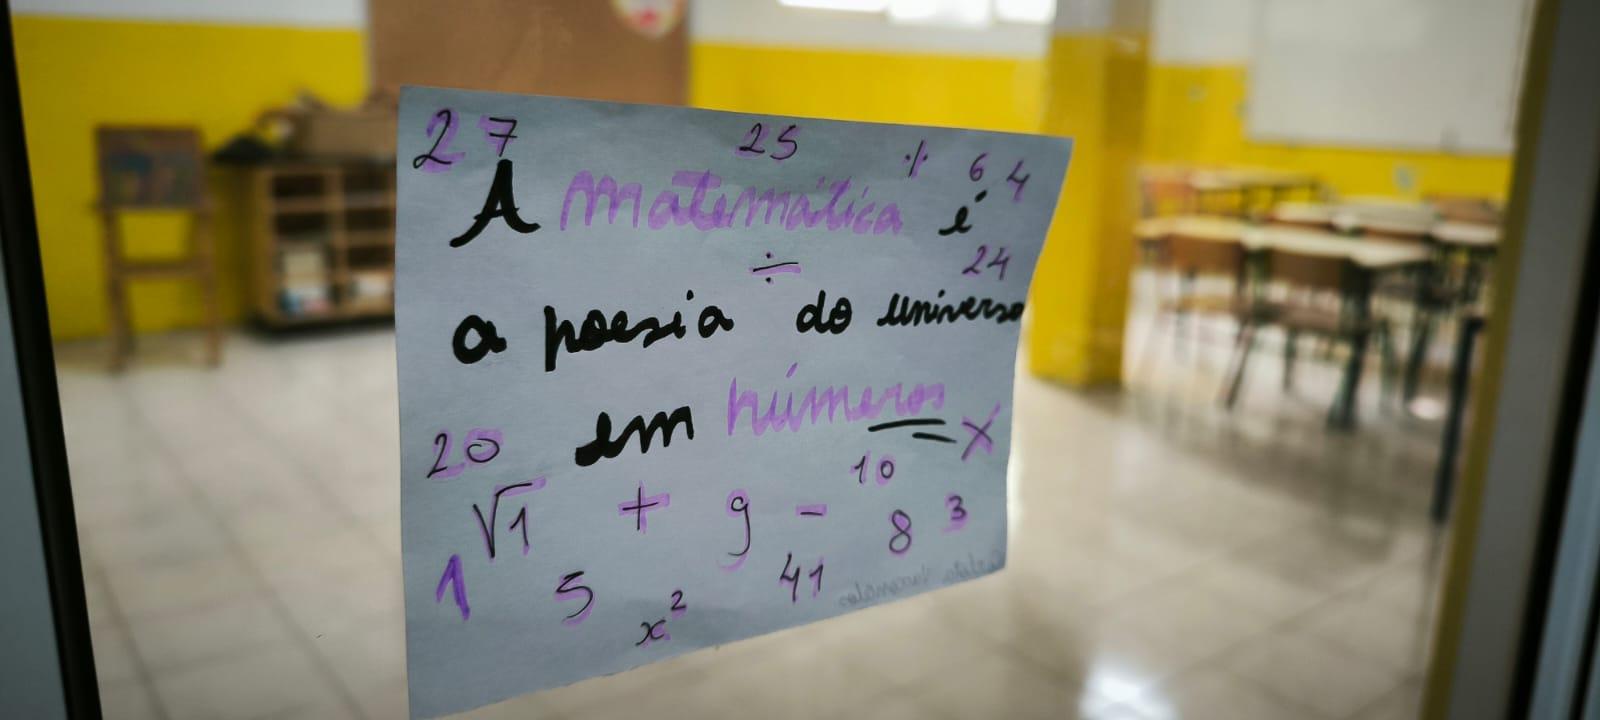 27 25 % 6 4
A matemática é
÷ 24
a poesia do universo
em números
20 x
10
√1 + 9 - 8 3
1 5 x² 41